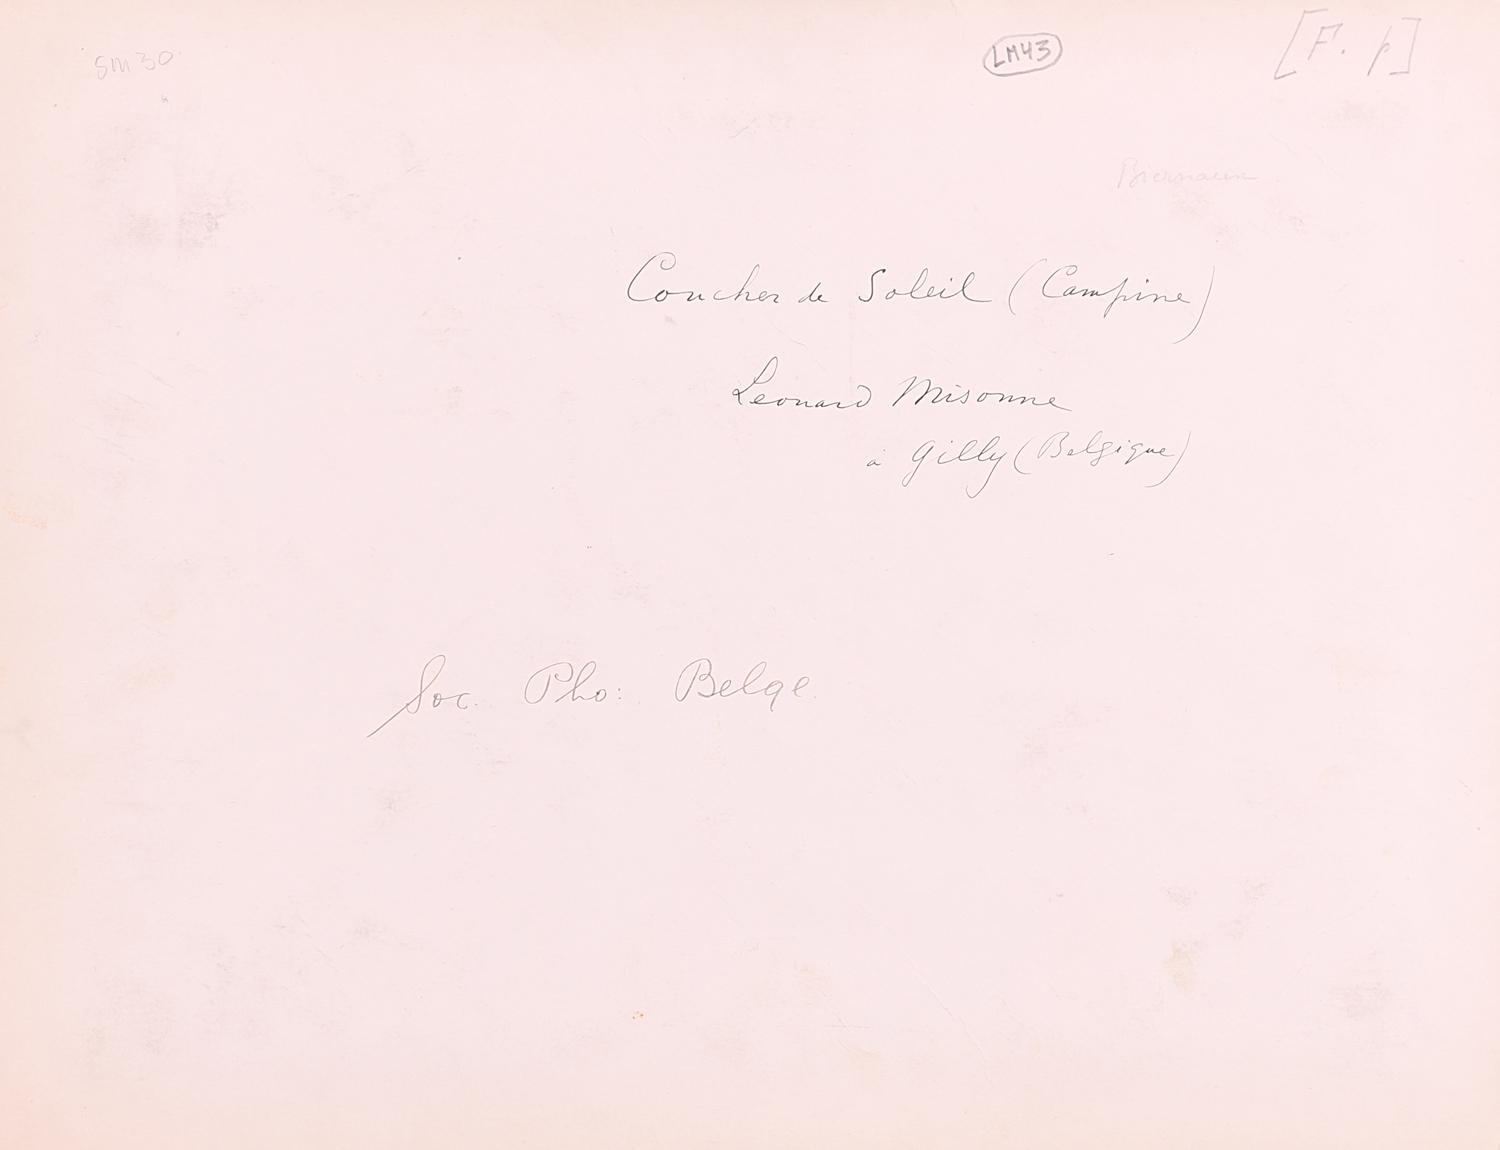 SM 30
LM43
[F. p]
Biernaux
Coucher de Soleil (Campine)
Léonard Misonne
à Gilly (Belgique)
Soc. Pho: Belge